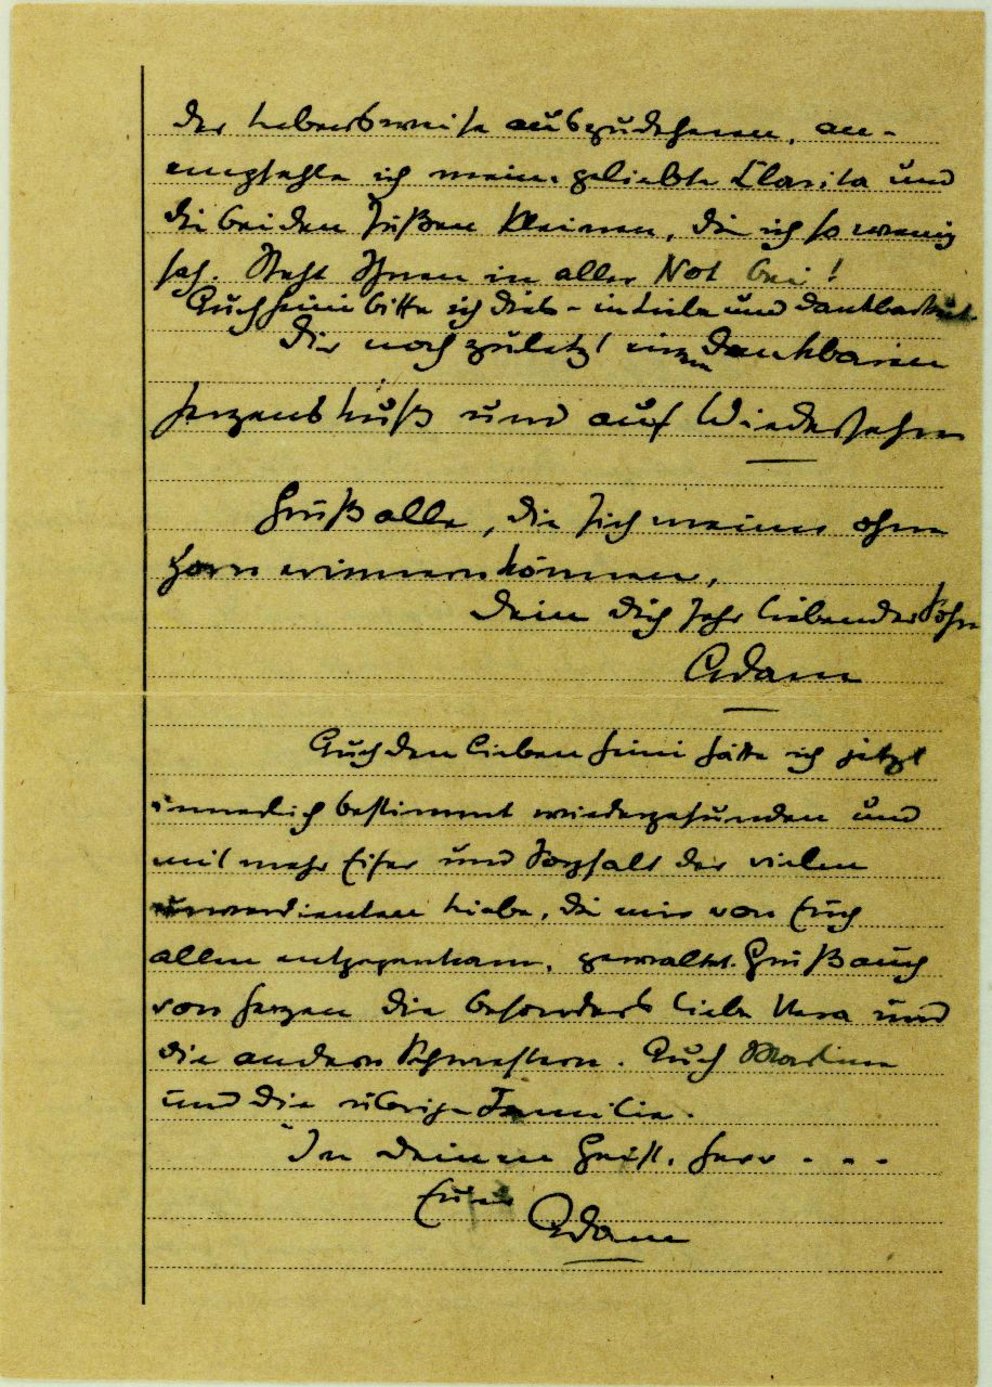 der Lebensweise auszudehnen, an-
empfehle ich meine geliebte Clarita und
die beiden süßen Kleinen, die ich so wenig
sah. Steht Ihnen in aller Not bei!
Auch Heini bitte ich dies – in Liebe und Dankbarkeit.
Dir noch zuletzt einen dankbaren
Herzenskuß und auf Wiedersehn
Grüß alle, die sich meiner ohne
Zorn erinnern können,
Dein Dich sehr liebender Sohn
Adam
Auch den lieben Heini hätte ich jetzt
innerlich bestimmt wiedergefunden und
mit mehr Eifer und Sorgfalt der vielen
unverdienten Liebe, die mir von Euch
allen entgegenkam, gewaltet. Grüß auch
von Herzen die besonders liebe Vera und
die andern Schwestern. Auch
und die übrige Familie.
In deinen Geist, Herr . . .
Euer Adam